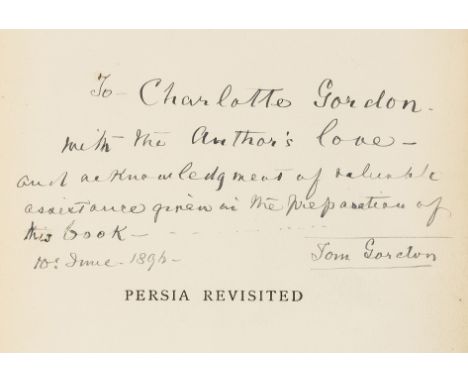 To - Charlotte Gordon -
with the Author's love -
and acknowledgment of valuable
assistance given in the preparation of
this book -
10: June. 1896 -
Tom Gordon
PERSIA REVISITED